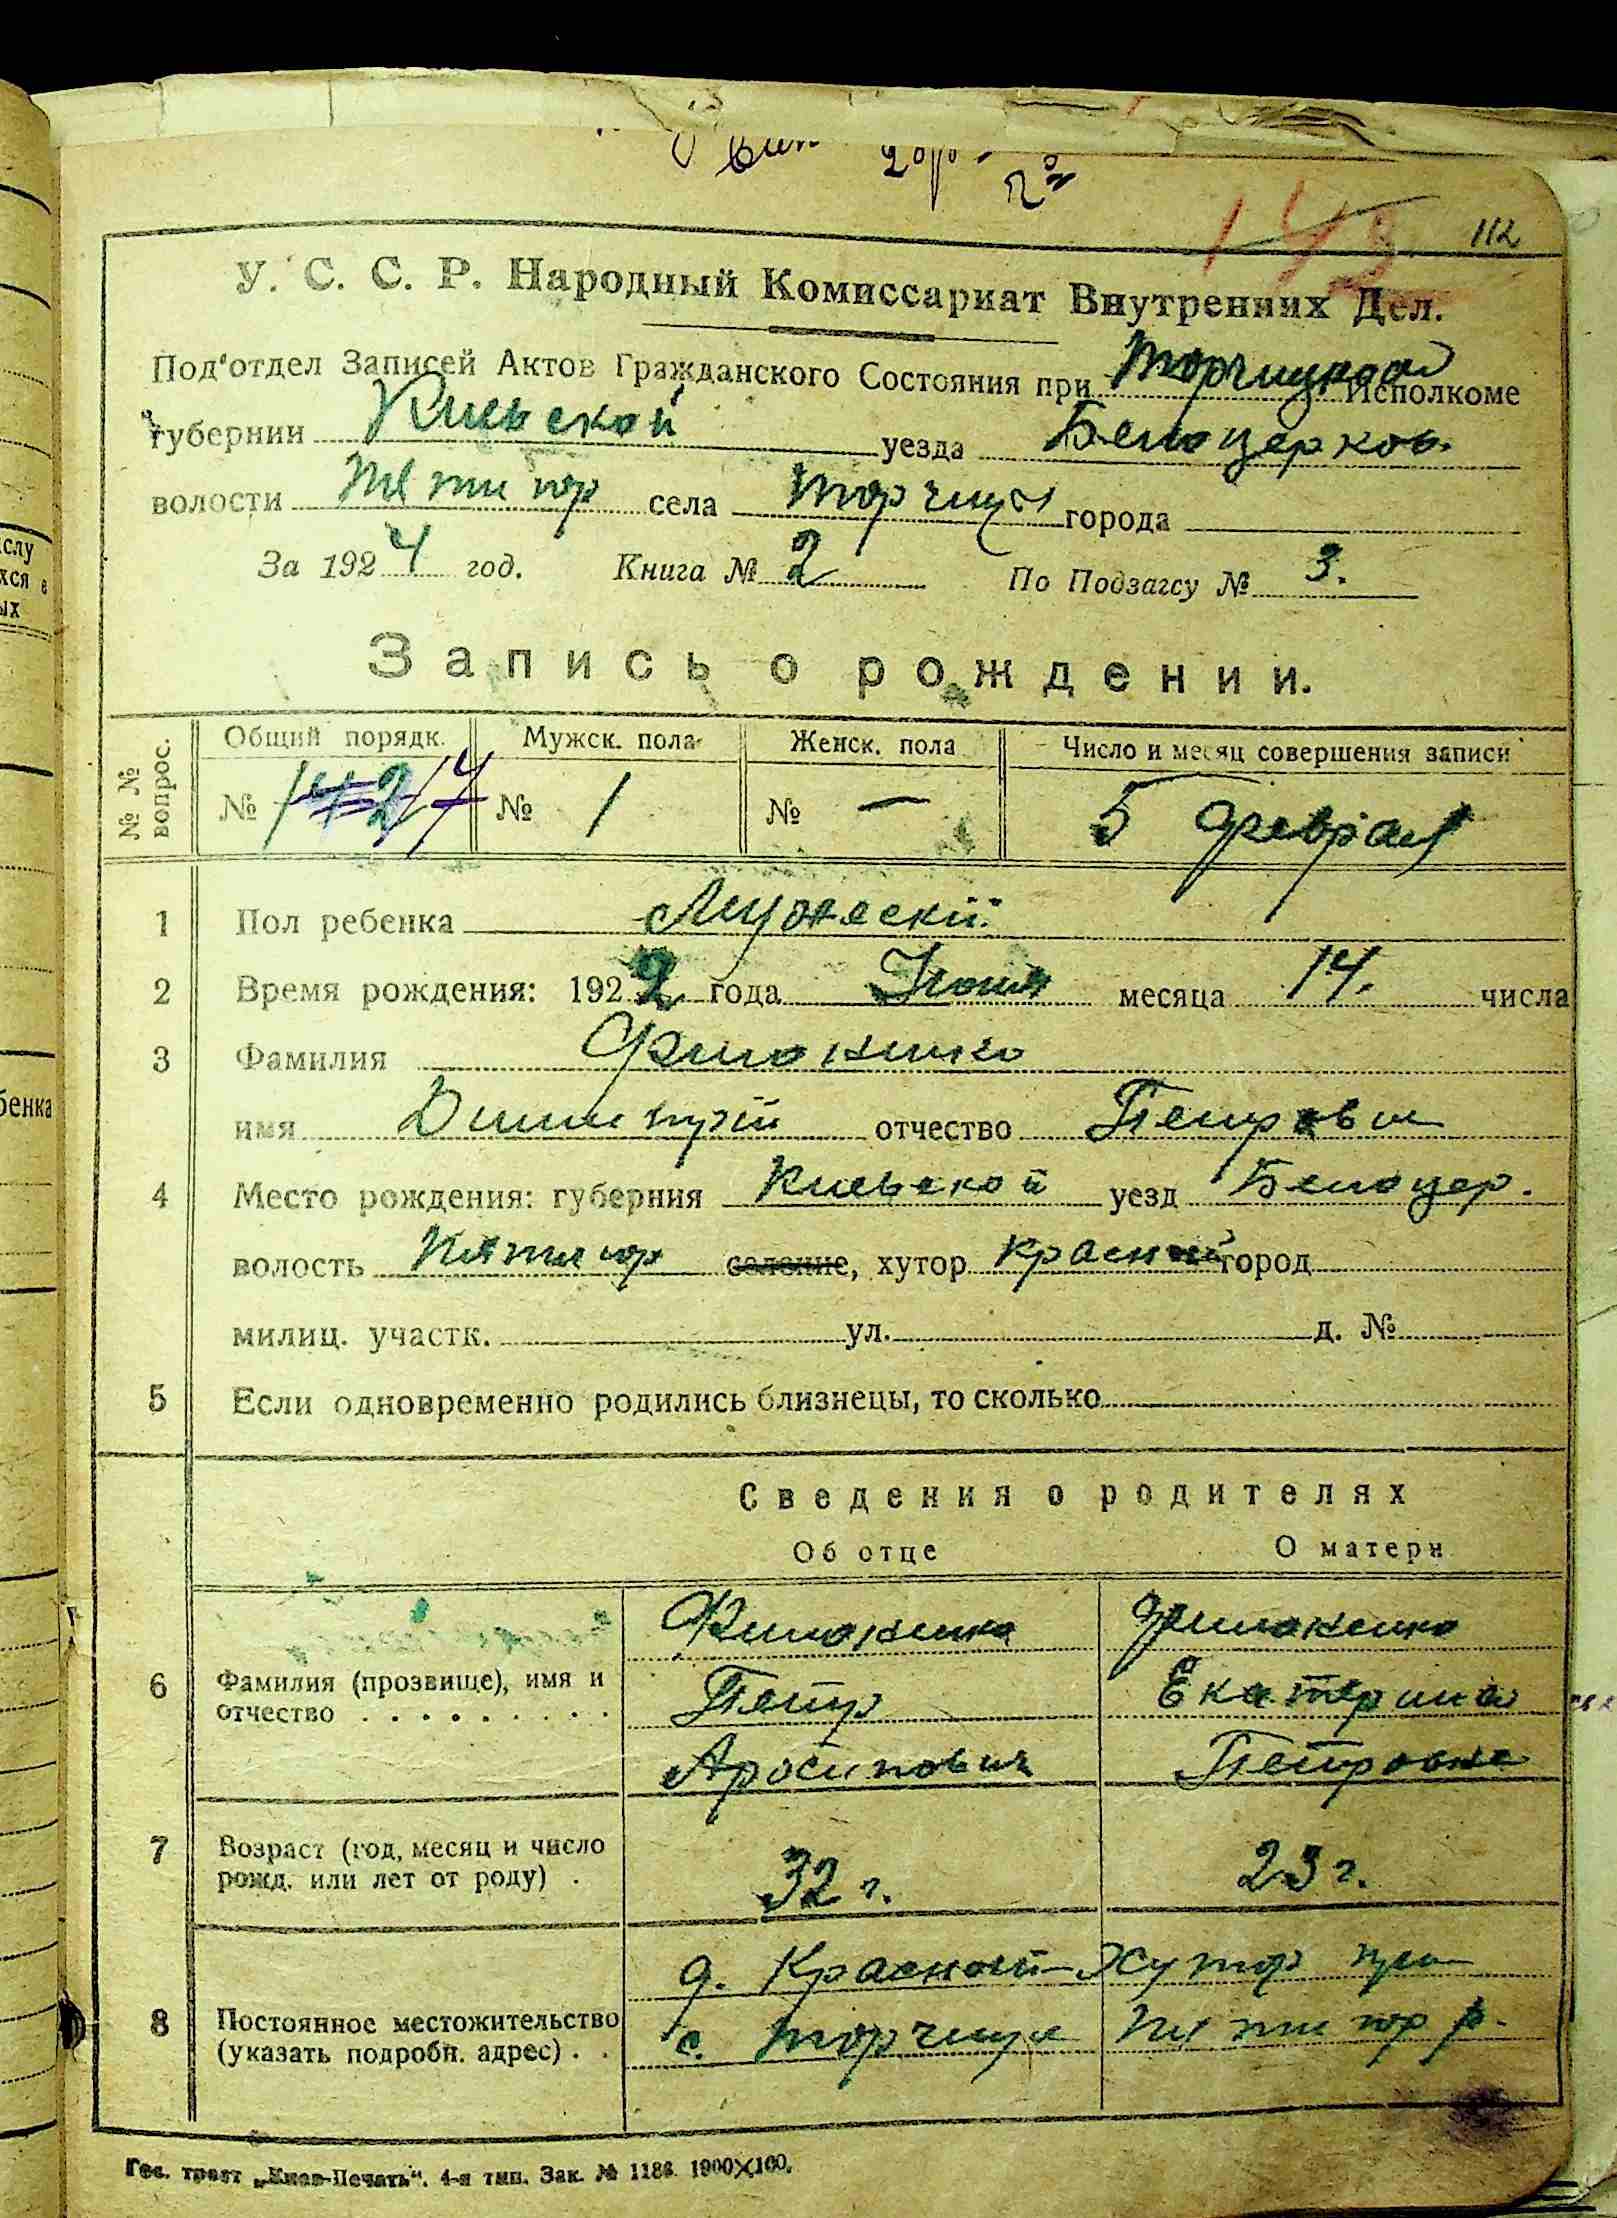 112
У. С. С. Р. Народный Комиссариат Внутренних Дел.
Под'отдел Записей Актов Гражданского Состояния при Торчицком Исполкоме
губернии Киевской уезда Белоцерков.
волости села Торчица города
За 1924 год. Книга № 2 По Подзагсу № 3.
Запись о рождении.
№ № вопрос. Общий порядк. Мужск. пола Женск. пола Число и месяц совершения записи
№ № 1 № — 5 февраля
1 Пол ребенка Мужескій
2 Время рождения: 1922 года Июня месяца 14. числа
3 Фамилия Филоненко
имя Димитрій отчество Петрович
4 Место рождения: губерния Киевской уезд Белоцер.
волость селение, хутор Красный город
милиц. участк. ул. д. №
5 Если одновременно родились близнецы, то сколько
Сведения о родителях
Об отце О матери
Филоненко Филоненко
6 Фамилия (прозвище), имя и Петр Екатерина
отчество Петровна
7 Возраст (год, месяц и число
рожд. или лет от роду) . 32 г. 23 г.
д. Красный-Хутор при
8 Постоянное местожительство с. Торчица р.
(указать подробн. адрес) . .
Гос. трест „Киев-Печать“. 4-я тип. Зак. № 1186 1900×100.